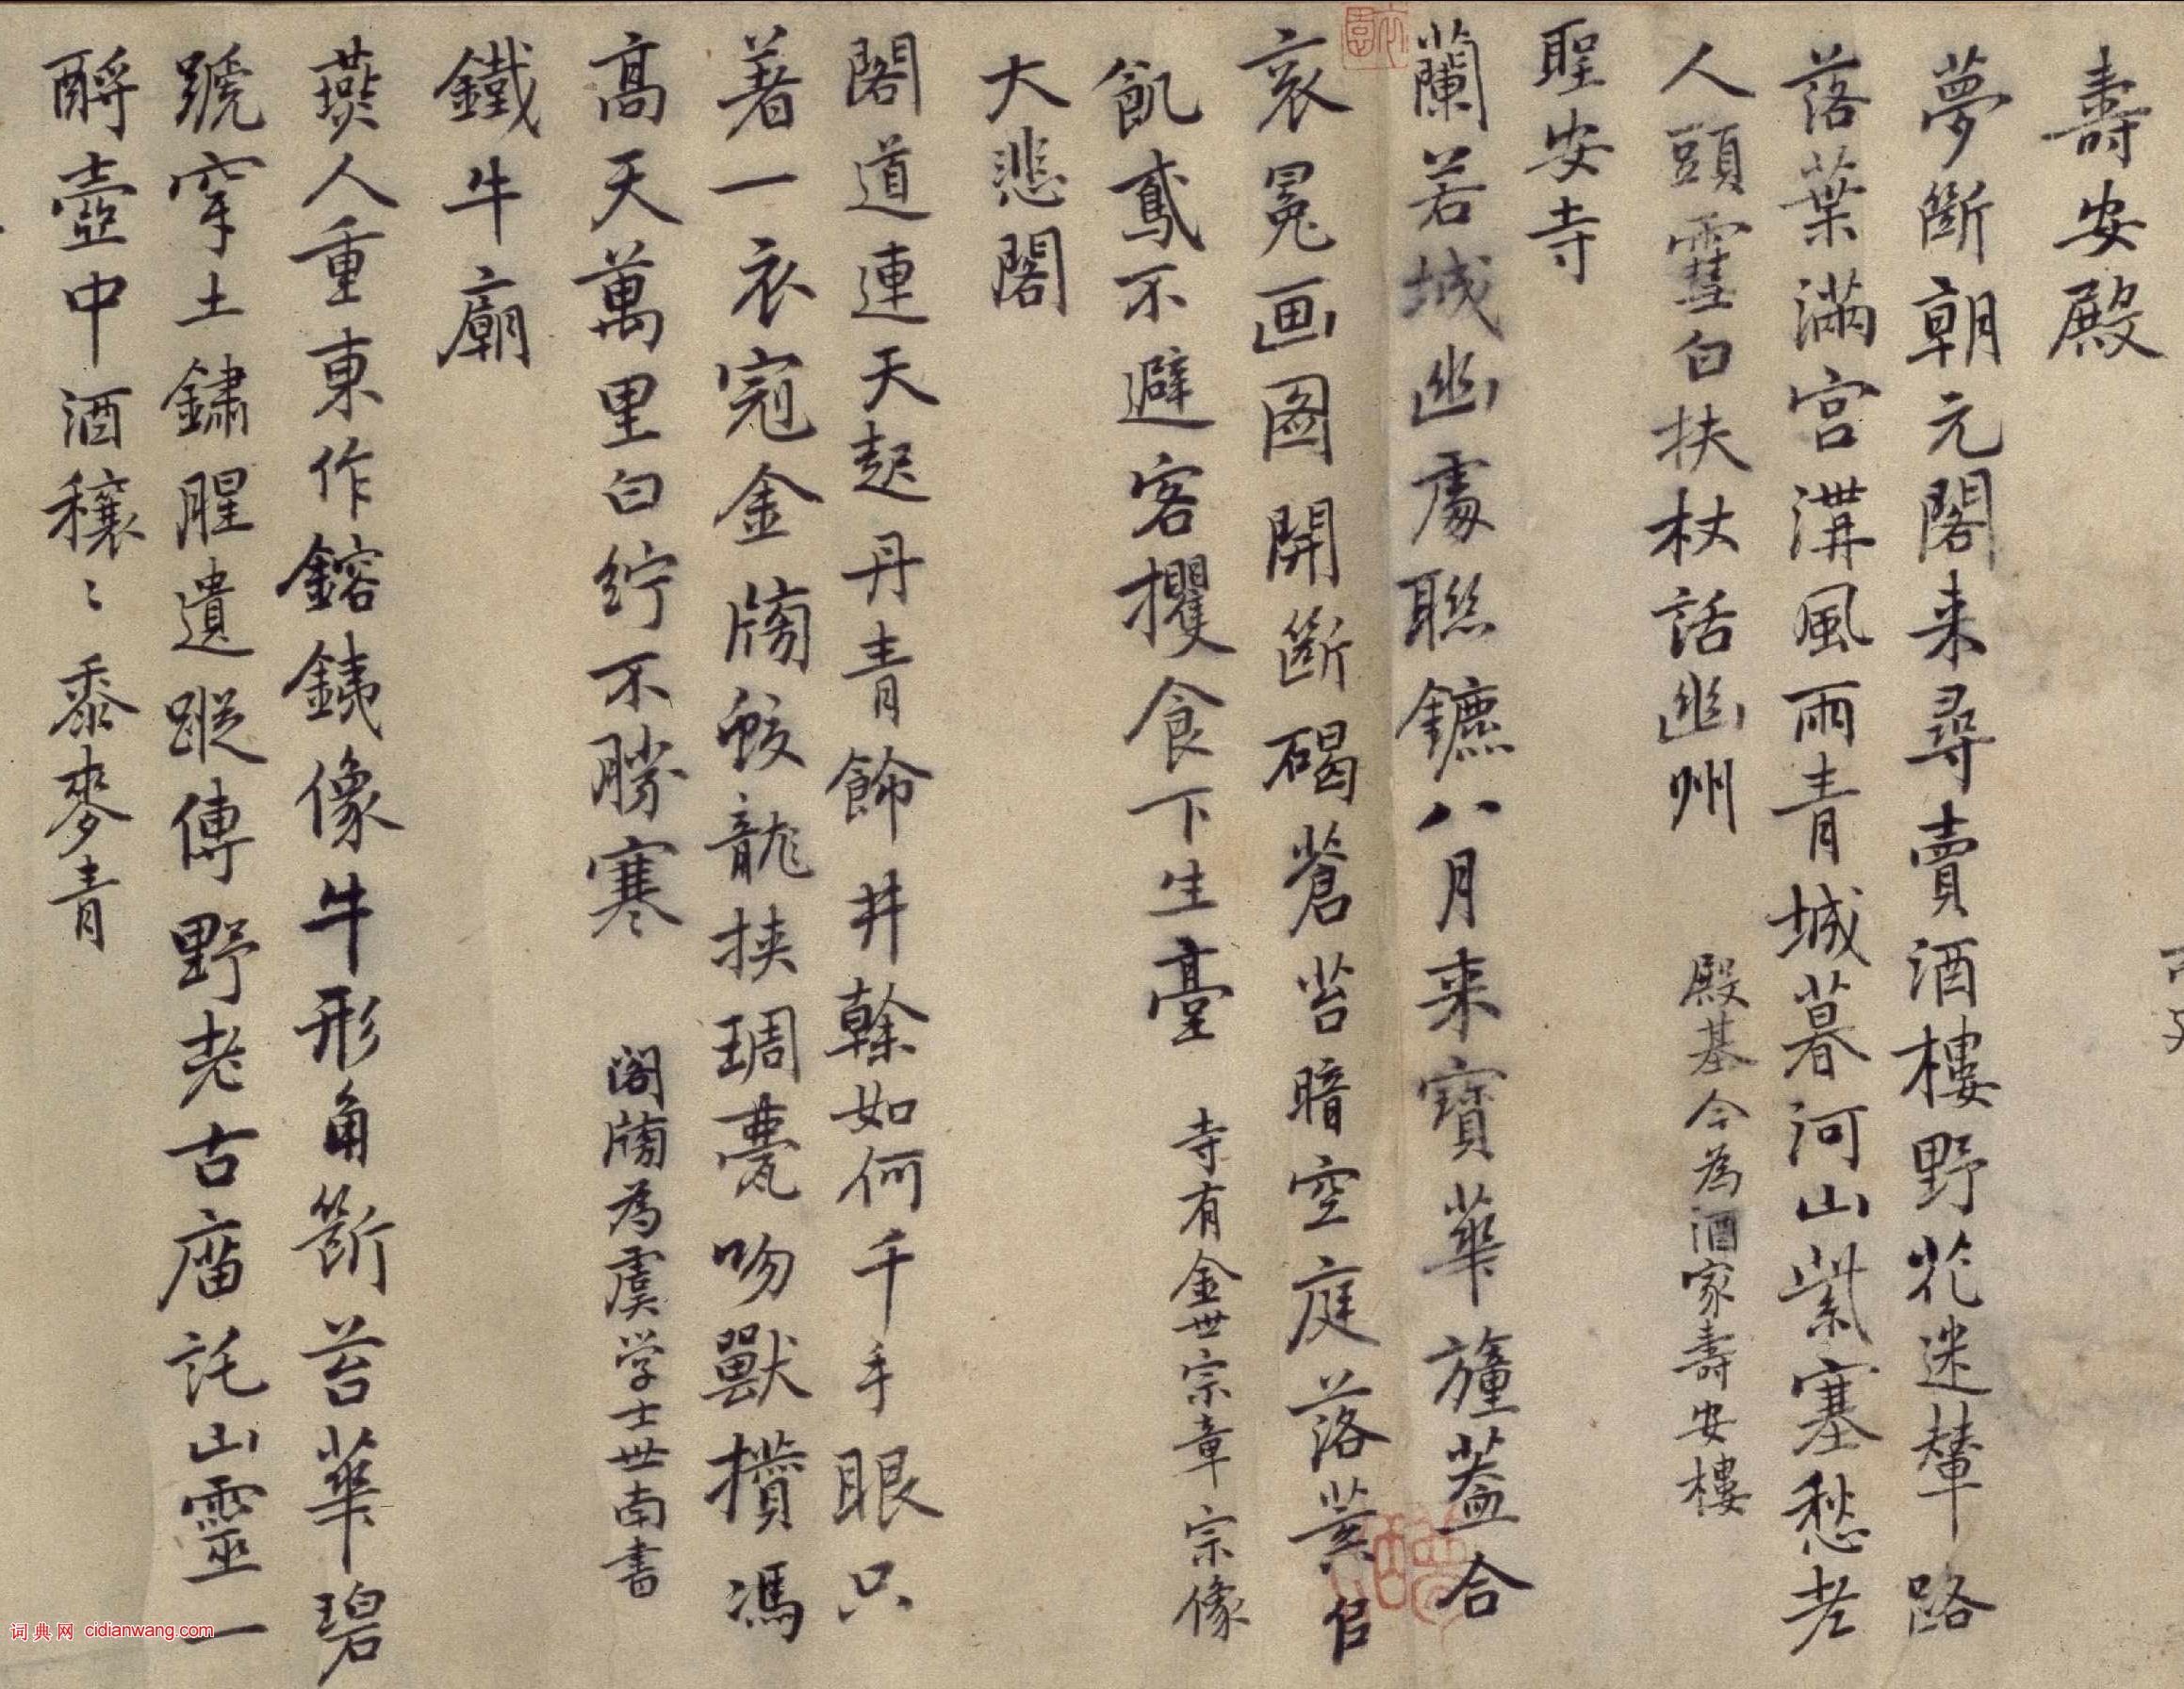 壽安殿
夢斷朝元閣来尋賣酒樓野花迷輦路
落葉滿宮溝風雨青城暮河山紫塞愁老
人頭雪白扶杖話幽州 殿基今為酒家壽安樓
聖安寺
蘭若城幽處聯鑣八月来寶華幢蓋合
衮冕画图開斷碣蒼苔暗空庭落葉
飢鳶不避客攫食下生臺 寺有金世宗章宗像
大悲閣
閣道連天起丹青飾井榦如何千手眼只
著一衣冠金牓蛟龍挾琱甍吻獸攢馮
高天萬里白紵不勝寒 閣牓為虞学士世南書
鐵牛廟
燕人重東作鎔銕像牛形角斷苔華碧
蹏穿土鏽腥遺蹤傳野老古庿託山靈一
酹壺中酒穰〻黍麥青
词典网 cidianwang.com